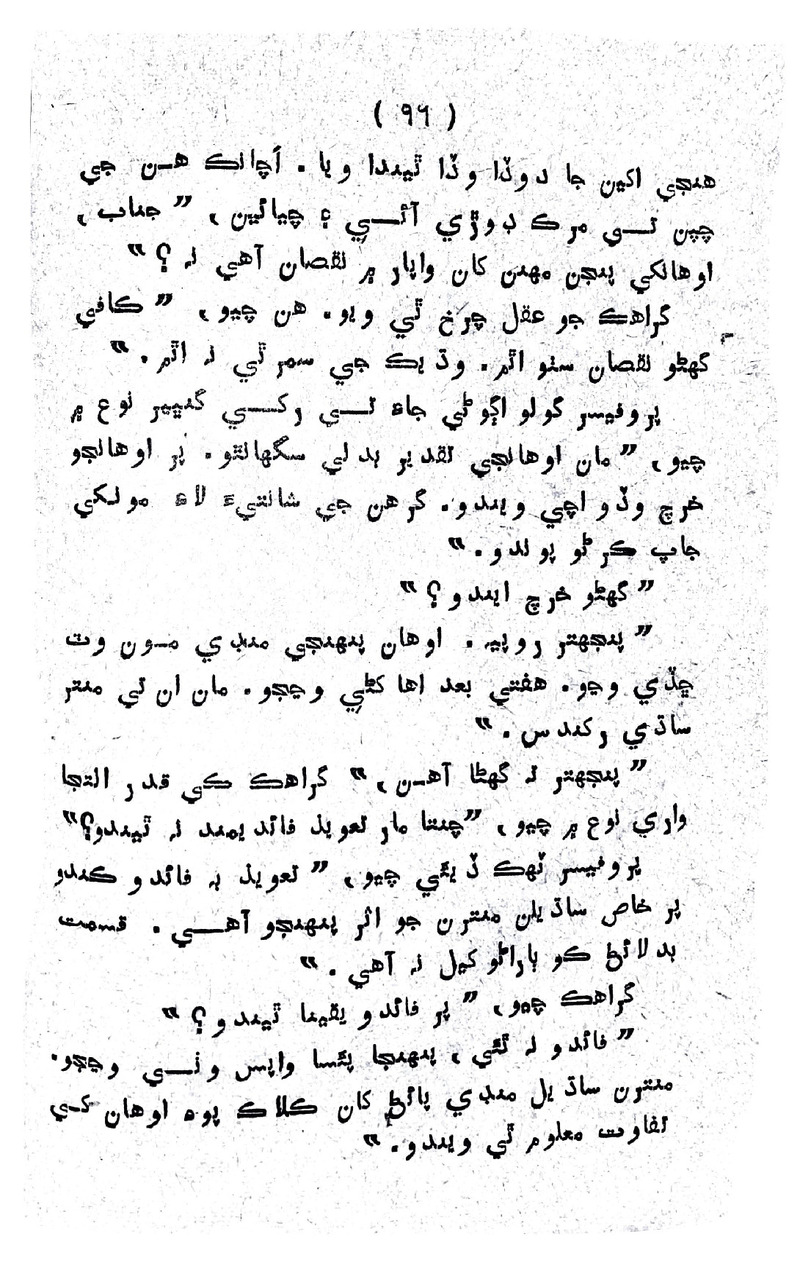 ( ٩٦ )
هنجي اکين جا دوڏا وڏا ٿيندا ويا. اَچانڪ هن جي
چپن تي مرڪ ڊوڙي آئي ۽ چيائين، ”جناب،
اوهانکي پنجن مهنن کان واپار ۾ نقصان آهي نہ؟“
گراهڪ جو عقل چرخ ٿي ويو. هن چيو، ”ڪافي
گهڻو نقصان سٺو اٿم. وڌيڪ جي سمر ٿي نہ اٿم.“
پروفيسر گولو اڳوڻي جاءِ تي رکي گنڀير نوع ۾
چيو، ”مان اوهانجي تقدير بدلي سگهانٿو. پر اوهانجو
خرچ وڏو اچي ويندو. گرهن جي شانتيءَ لاءِ مونکي
جاپ ڪرڻو پوندو.“
”گهڻو خرچ ايندو؟“
”پنجهتر روپيہ. اوهان پنهنجي منڊي مون وٽ
ڇڏي وڃو. هفتي بعد اها کڻي وڃجو. مان ان تي منتر
ساڌي رکندس.“
”پنجهتر تہ گهڻا آهن،“ گراهڪ ڪي قدر التجا
واري نوع ۾ چيو، ”چنتا مار تعويذ فائديمند نہ ٿيندو؟“
پروفيسر ٽهڪ ڏيئي چيو، ”تعويذ بہ فائدو ڪندو
پر خاص ساڌيلن منترن جو اثر پنهنجو آهي. قسمت
بدلائڻ ڪو ٻاراڻو کيل نہ آهي.“
گراهڪ چيو، ”پر فائدو يقينا ٿيندو؟“
”فائدو نہ ٿئي، پنهنجا پئسا واپس وٺي وڃجو.
منترن ساڌيل منڊي پائڻ کان ڪلاڪ پوءِ اوهان کي
تفاوت معلوم ٿي ويندو.“